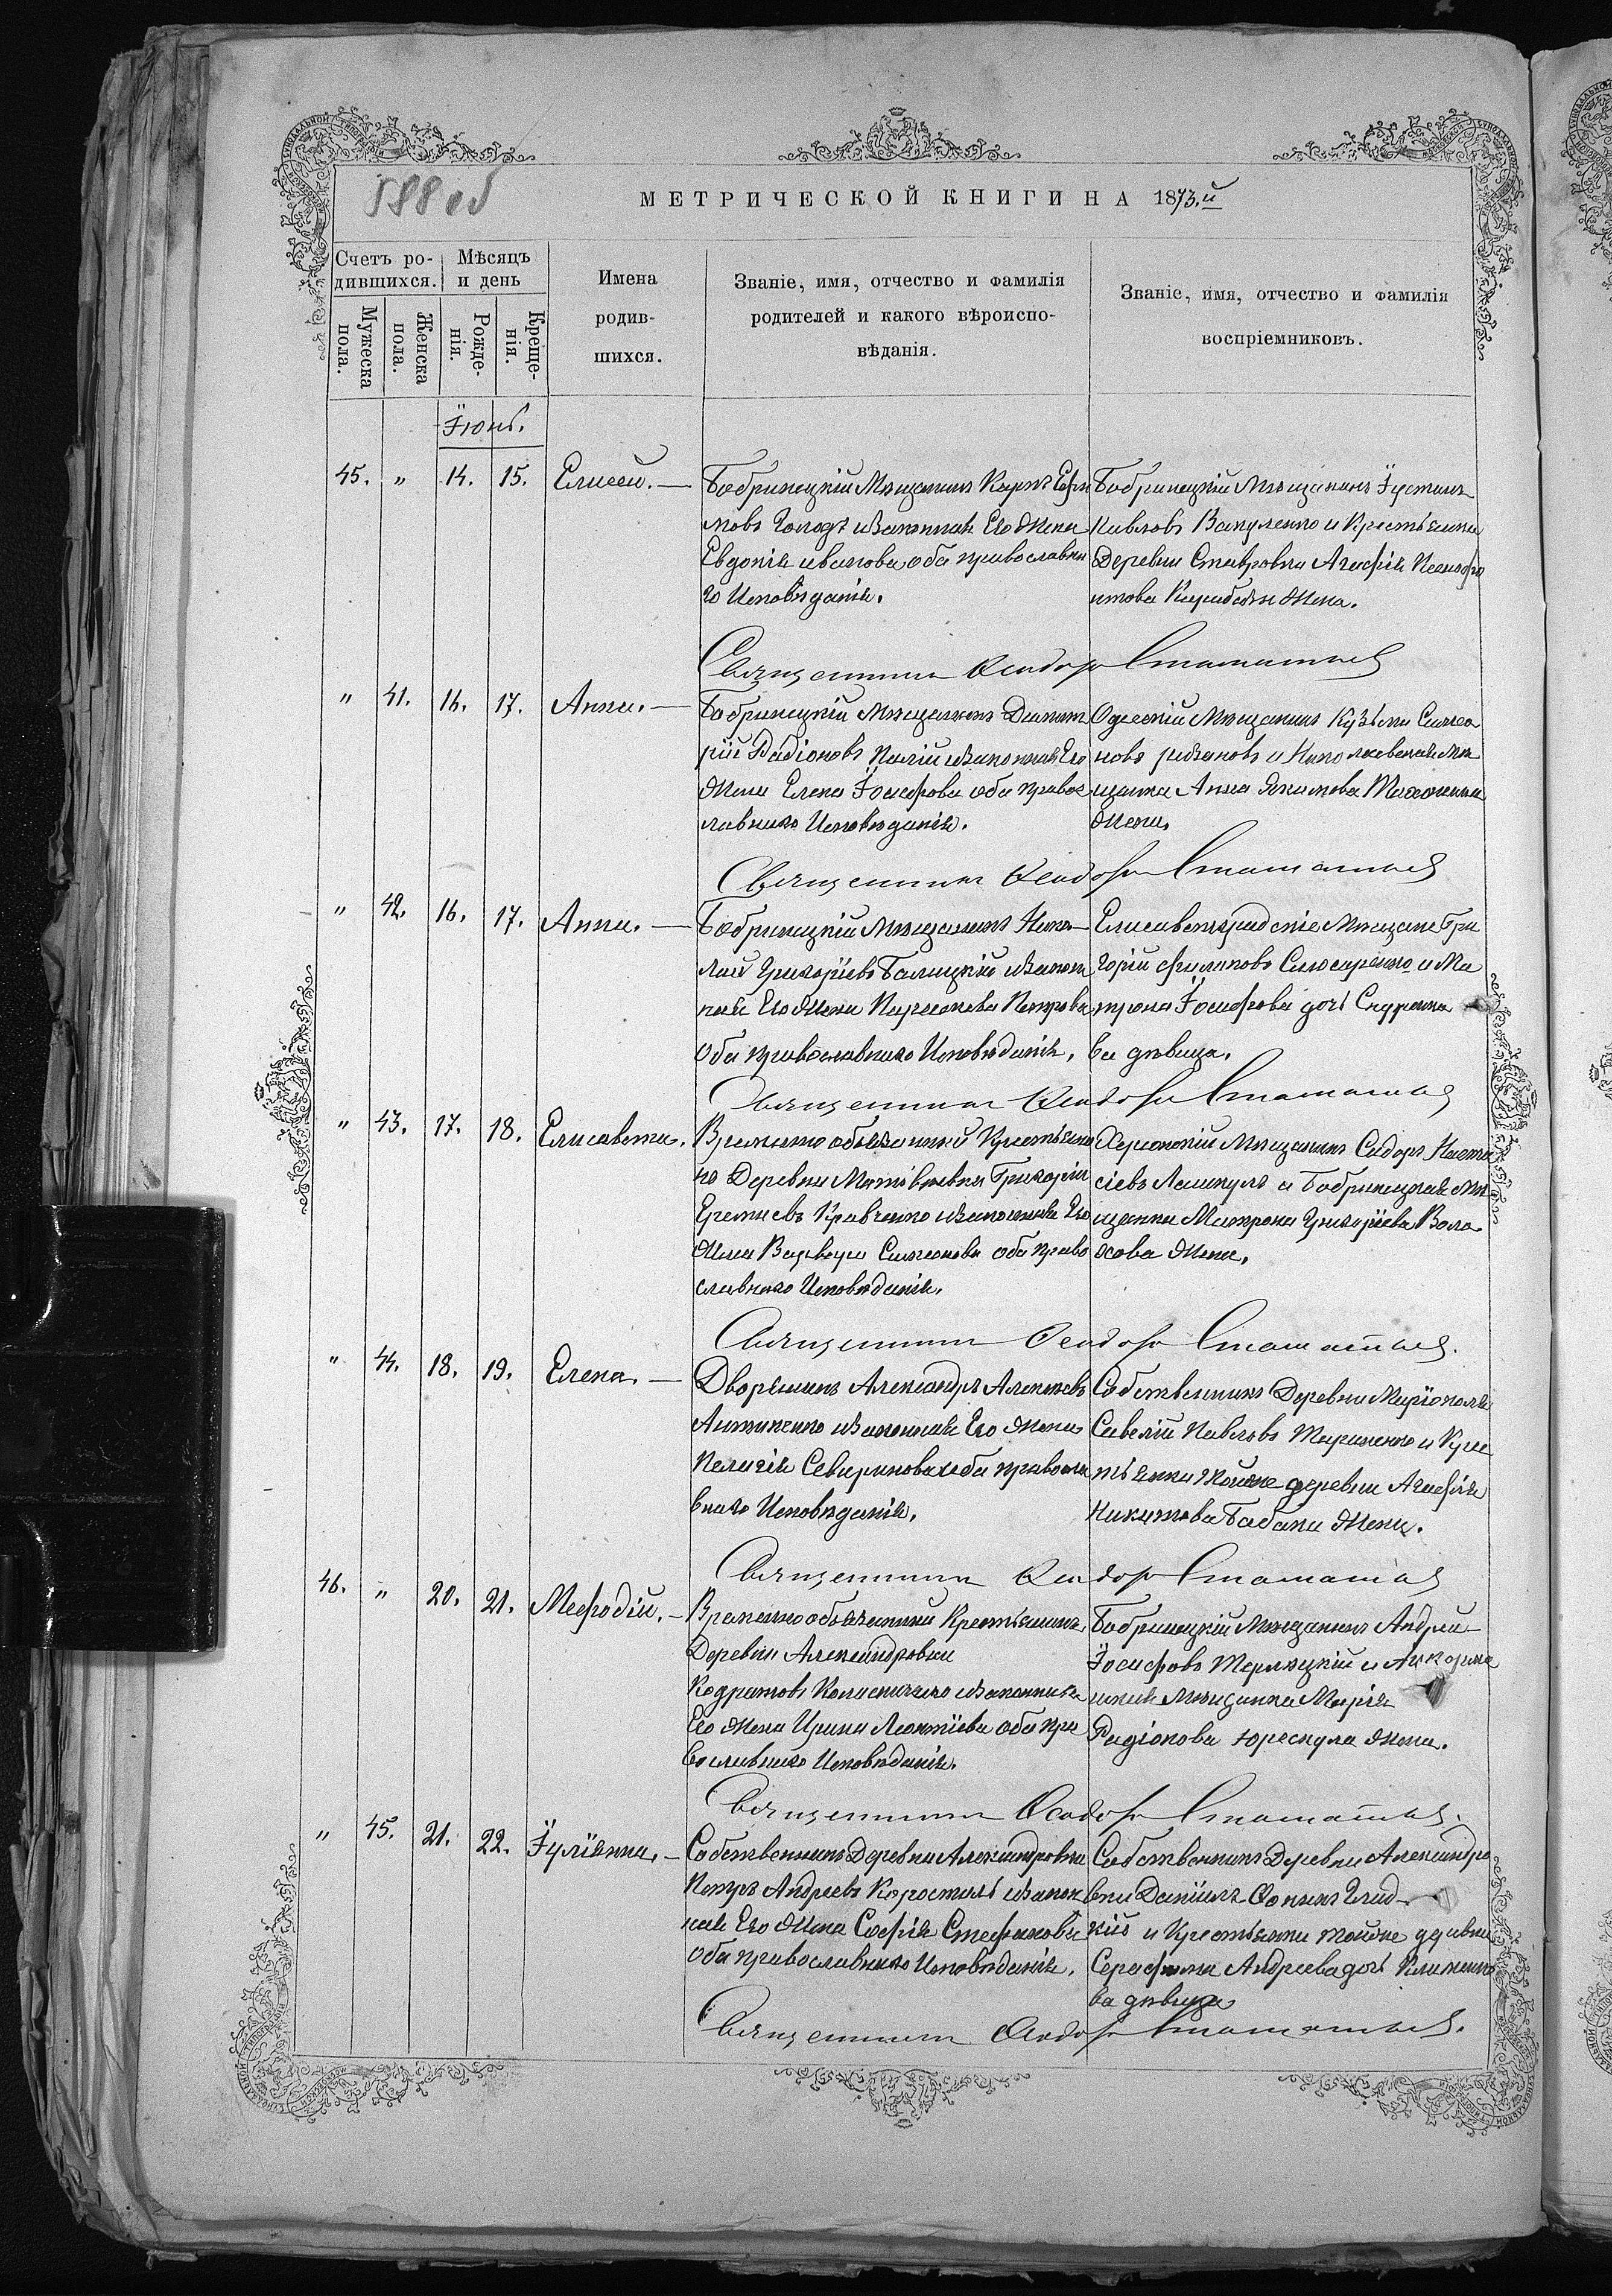 588 об
МЕТРИЧЕСКОЙ КНИГИ НА 1873.й
Счетъ ро-
дившихся.
Мѣсяцъ
и день
Мужеска
пола.
Женска
пола.
Рожде-
нія.
Креще-
нія.
Имена
родив-
шихся.
Званіе, имя, отчество и фамилія
родителей и какого вѣроиспо-
вѣданія.
Званіе, имя, отчество и фамилія
воспріемниковъ.
Їюнь.
45. " 14. 15. Елисей.
Бобринецкій Мѣщанинъ Карпъ Ефи
мовъ Голодъ изаконная Его Жена
Евдокія иванова оба православна
го Исповѣданія.
Бобринецкій Мѣщанинъ Їустинъ
Павловъ Вакуленко и Крестьянка
Деревни Ставровки Агафія Ксеноφо
нтова Жена.
Священникъ Ѳеодоръ
" 41. 16. 17. Анна.
Бобринецкій Мѣщанинъ Димит
рій Радіоновъ Палій изаконная Его
Жена Елена Їосифова оба правос
лавнаго Исповѣданія.
Одесскій Мѣщанинъ Кузьма Симео
новъ и Николаевская Мѣ
щанка Анна Якимова
Жена.
Священникъ Ѳеодоръ
" 42. 16. 17. Анна.
Бобринецкій Мѣщанинъ Нико
лай Григорїевъ Балицкій изакон
ная Его Жена Параскева Петрова
Оба православнаго Исповѣданія.
Елисаветградскіе Мѣщане Гри
горій Филиповъ Слюсаренко и Ма
трона Їосифова дочь
ва дѣвица.
Священникъ Ѳеодоръ
" 43. 17. 18. Елисавета.
Временно обязанный Крестьяни
нъ Деревни Григорій
Еремиевъ Кравченко изаконная Его
Жена Варвара Симеонова оба право
славнаго Исповѣданія.
Херсонскій Мѣщанинъ Сидоръ
и Бобринецкая Мѣ
щанка Матрона Григорїева Воло
хова Жена.
Священникъ Ѳеодоръ
" 44. 18. 19. Елена.
Дворянинъ Александръ Алексѣевъ
изаконная Его Жена
Пелагія Севиринова оба правосла
внаго Исповѣданія.
Собственникъ Деревни Марїополя
Савелій Павловъ и Крес
тьянка тойже деревни Агафія
Никитова Бабака Жена.
Священникъ Ѳеодоръ
46. " 20. 21. Мефодій.
Временно обязанный Крестьянинъ
Деревни Александровки
Кодратовъ изаконная
Его Жена Ирина Леонтїева оба пра
вославнаго Исповѣданія.
Бобринецкій Мѣщанинъ Андрей
Їосифовъ Терлецкій и
Мѣщанка Марія
Радіонова Жена.
Священникъ Ѳеодоръ
" 45. 21. 22. Їулїанна.
Собственникъ Деревни Александровки
Петръ Андреевъ Коростиль изакон
ная Его Жена Софія Стефанова
Оба православнаго Исповѣданія.
Собственникъ Деревни Александро
вки Данїилъ Глад
кій и Крестьянка тойже деревни
Серафима Андреева дочь Клименко
ва дѣвица
Священникъ Ѳеодоръ